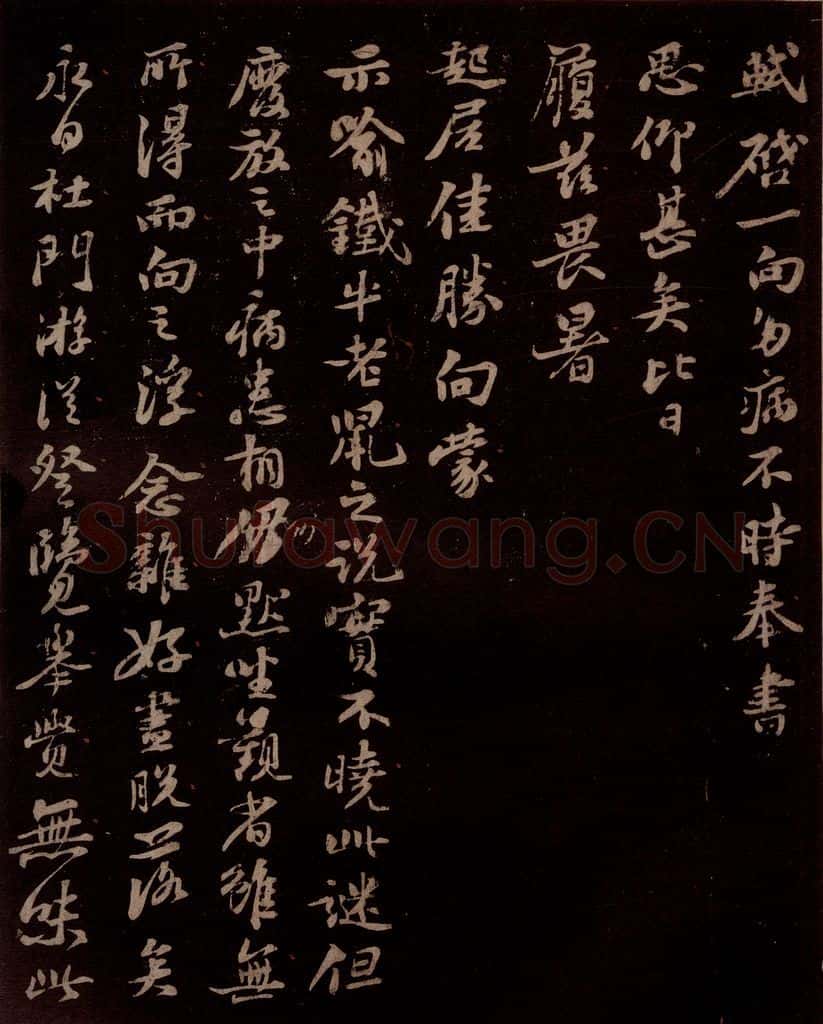 軾啓一向多病不時奉書
思仰甚矣比日
履茲畏暑
起居佳勝向蒙
示喻鐵牛老鼠之說實不曉此謎但
廢放之中病患相仍默坐觀省雖無
所得而向之浮念雜好盡脫落矣
永日杜門游從登覽舉覺無味此
Shufawang.CN